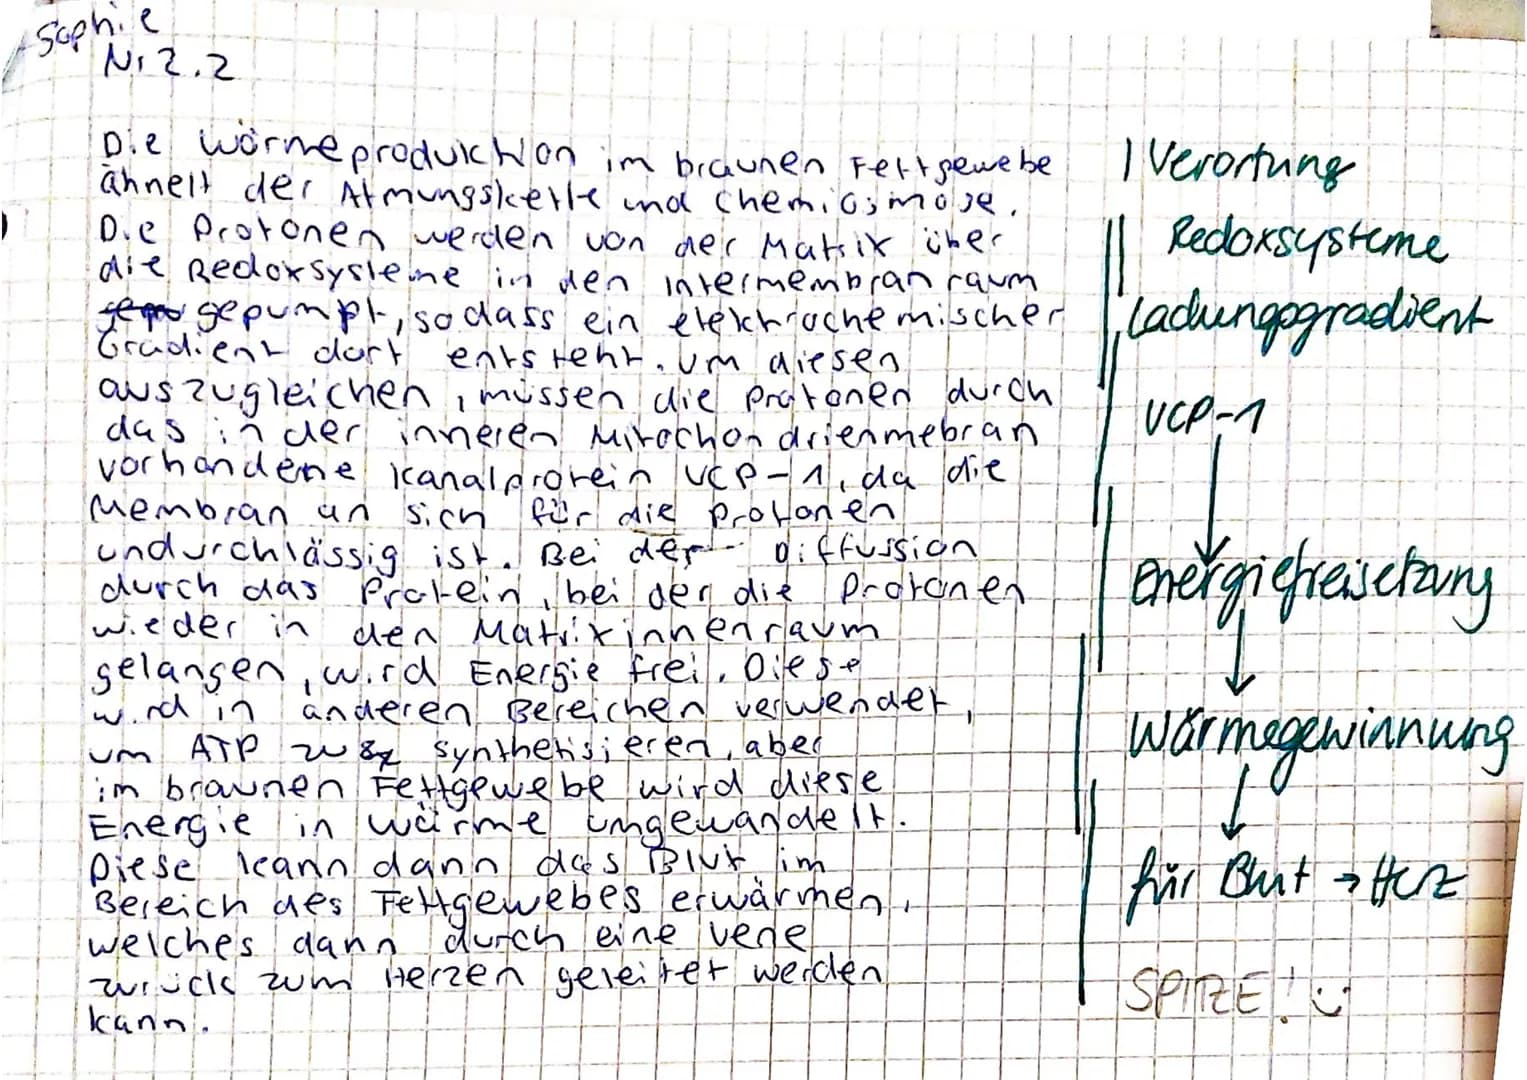 Sophie
Nr 2.2
Die Wärmeproduktion im braunen Fettgewebe
ähnelt der Atmungskette und Chemiosmose.
Die Protonen werden von der Matrix über
die Redoxsysteme in den Intermembranraum
gepumpt, sodass ein elektrochemischer
Gradient dort entsteht. Um diesen
auszugleichen, müssen die Protonen durch
das in der inneren Mitochondrienmebran
vorhandene Kanalprotein UCP-1, da die
Membran an sich für die Protonen
undurchlässig ist. Bei der Diffussion
durch das Protein, bei der die Protonen
wieder in den Matrixinnenraum
gelangen, wird Energie frei. Diese
wird in anderen Bereichen verwendet,
um ATP zu synthetisieren, aber
im braunen Fettgewebe wird diese
Energie in Wärme umgewandelt.
Diese kann dann das Blut im
Bereich des Fettgewebes erwärmen,
welches dann durch eine Vene
zurück zum Herzen geleitet werden
kann.
Verortung
Redoxsysteme
Ladungsgradient
UCP-1
Energiefreisetzung
Wärmegewinnung
für Blut → Herz
SPITZE! :)